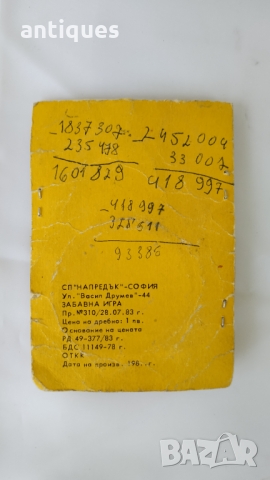 antiques
1837307
235478
1601829
452004
33007
418997
418997
93386
СП "НАПРЕДЪК"-СОФИЯ
Ул. "Васил Друмев"-44
ЗАБАВНА ИГРА
Пр. №310/28.07.83 г.
Цена на дребно: 1 кв.
Основание на цената
РД-49-377/83 г.
БДС 11149-78 г.
ОТКК
Дата на произв. 198 г.
BAZAR